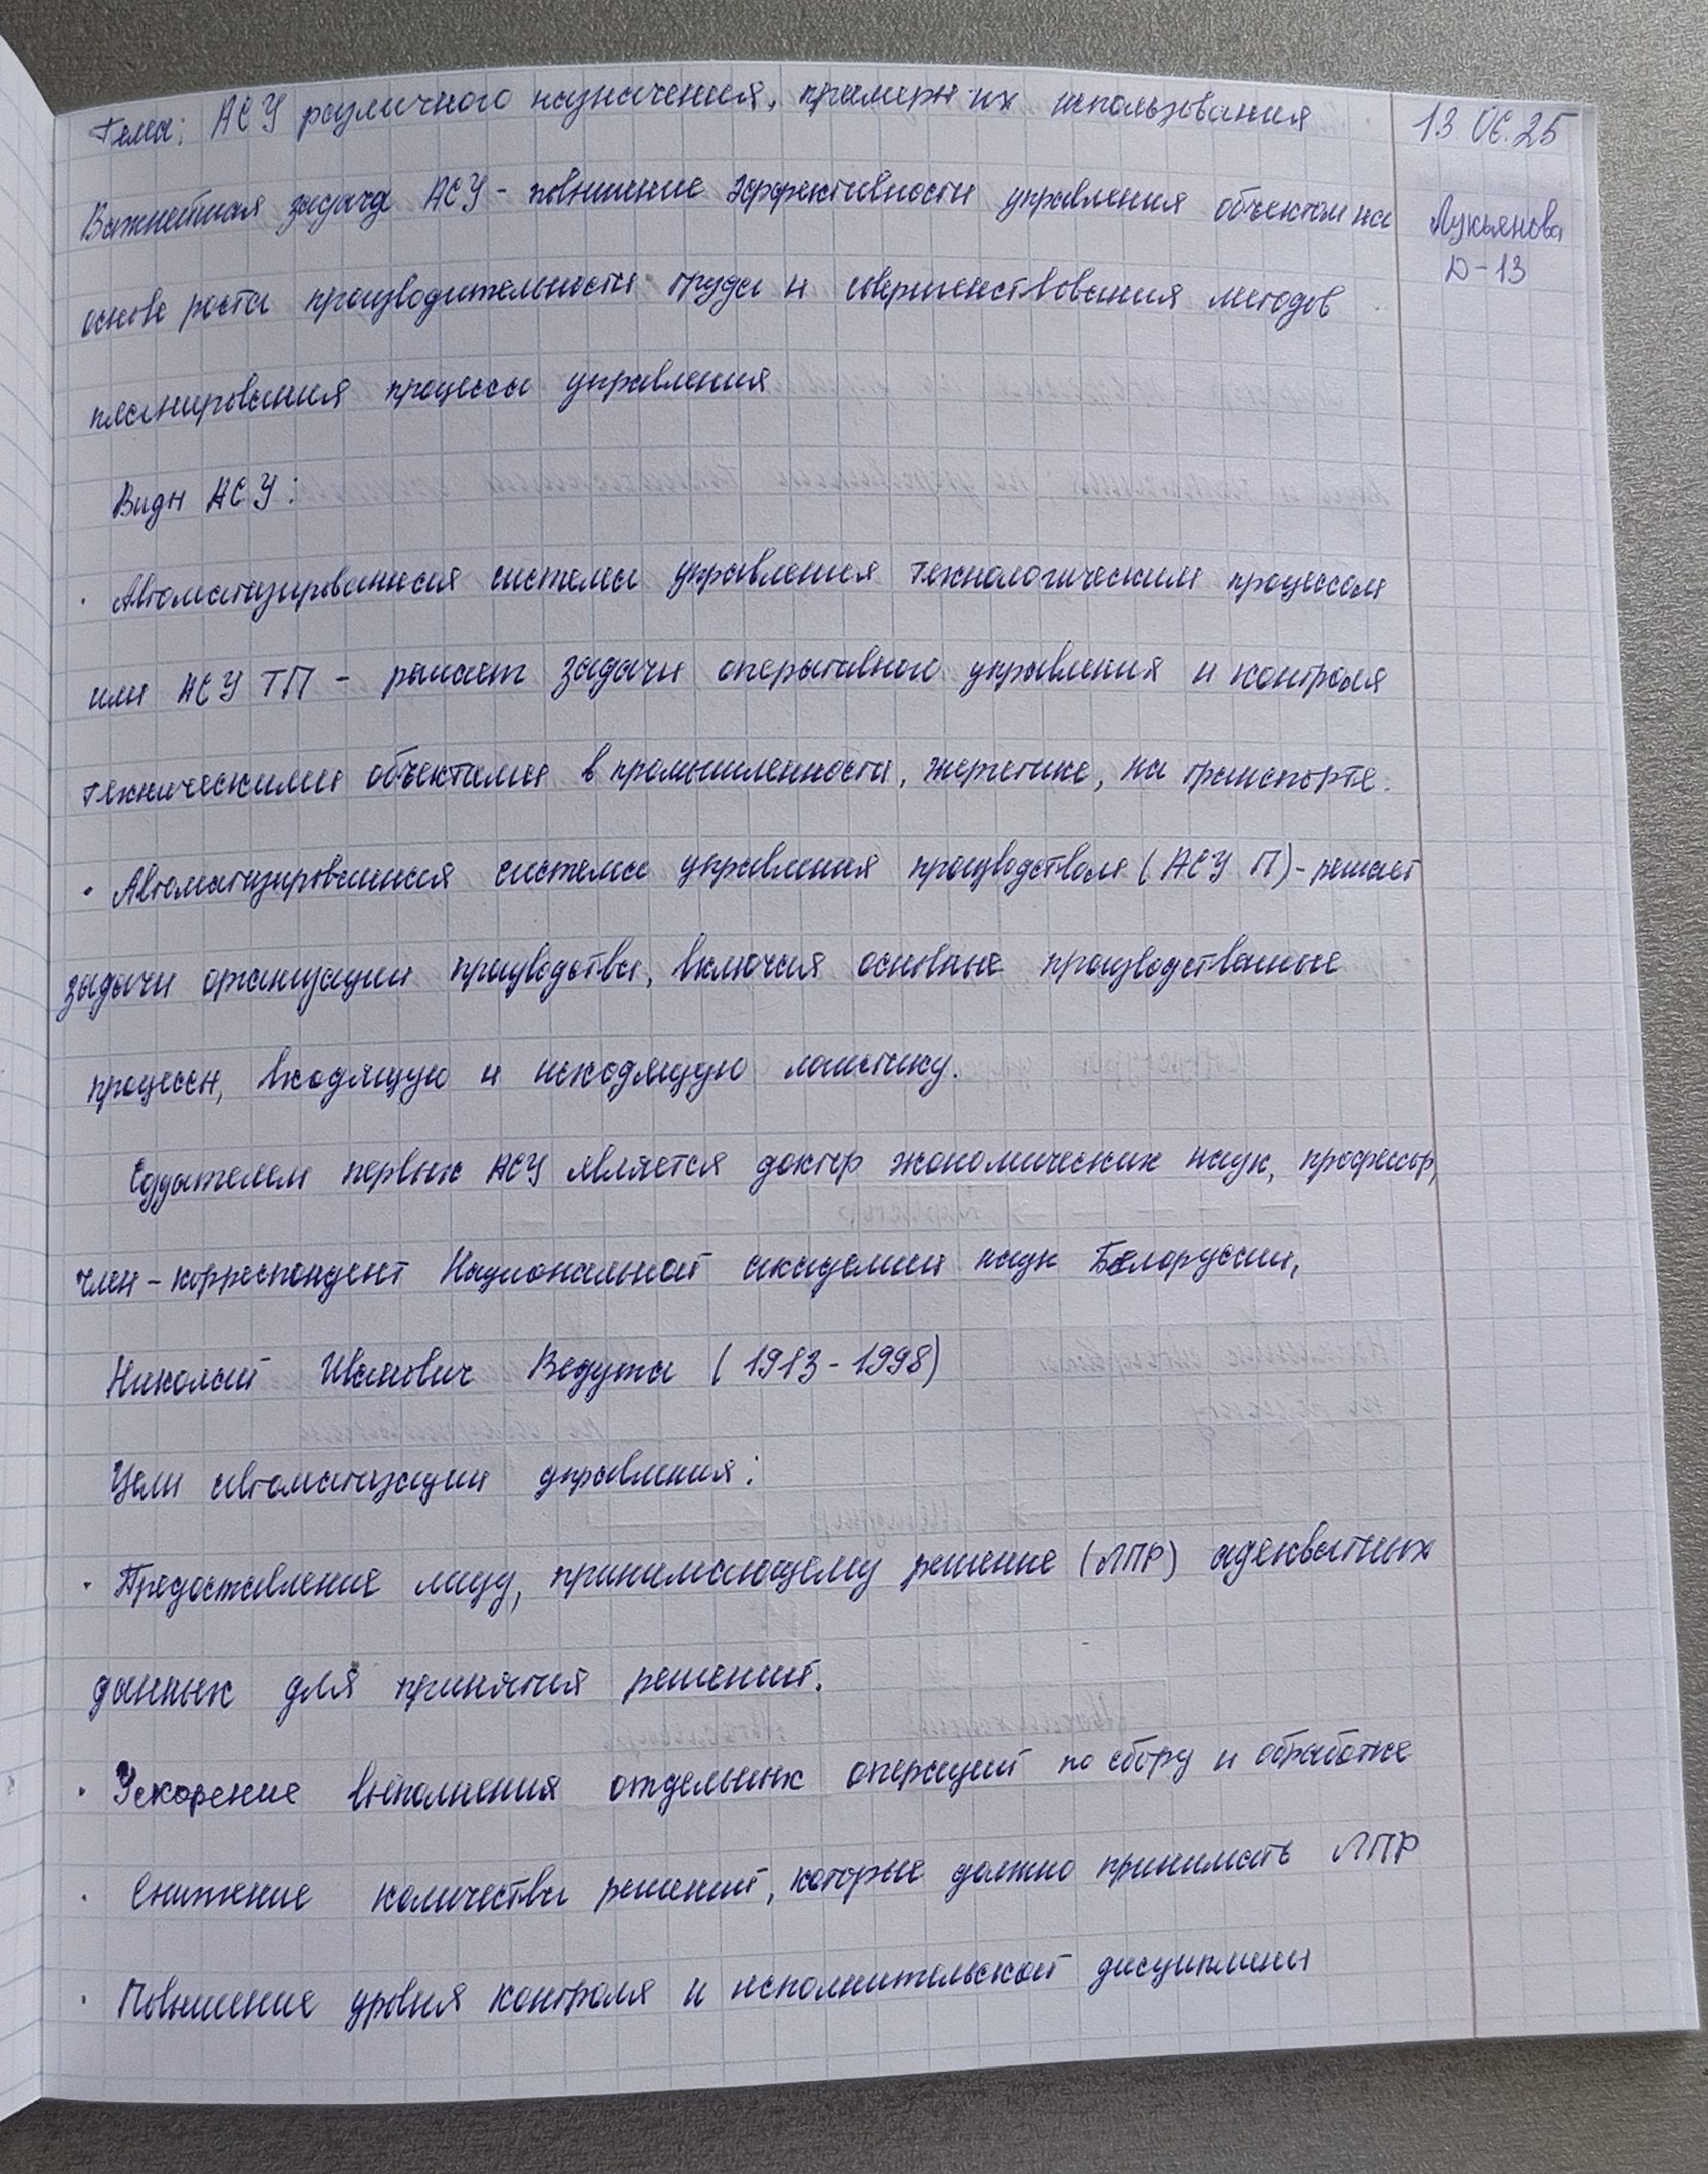 Тема: АСУ различного назначения, примеры их использования
13 06.25
Важнейшая задача АСУ - повышение эффективности управления объектом на
Лукьянова
D-13
основе роста производительности труда и совершенствования методов
планирования процесса управления
Виды АСУ:
· Автоматизированная система управления технологическим процессом
или АСУ ТП - решает задачи оперативного управления и контроля
техническими объектами в промышленности, энергетике, на транспорте.
· Автоматизированная система управления производством (АСУ П) - решает
задачи организации производства, включая основные производственные
процессы, входящую и исходящую логистику.
Создателем первых АСУ является доктор экономических наук, профессор,
член-корреспондент Национальной академии наук Белоруссии,
Николай Иванович Ведута (1913-1998)
Цели автоматизации управления:
· Предоставление лицу, принимающему решение (ЛПР) адекватных
данных для принятия решений.
· Ускорение выполнения отдельных операций по сбору и обработке
· Снижение количества решений, которые должно принимать ЛПР
· Повышение уровня контроля и исполнительской дисциплины